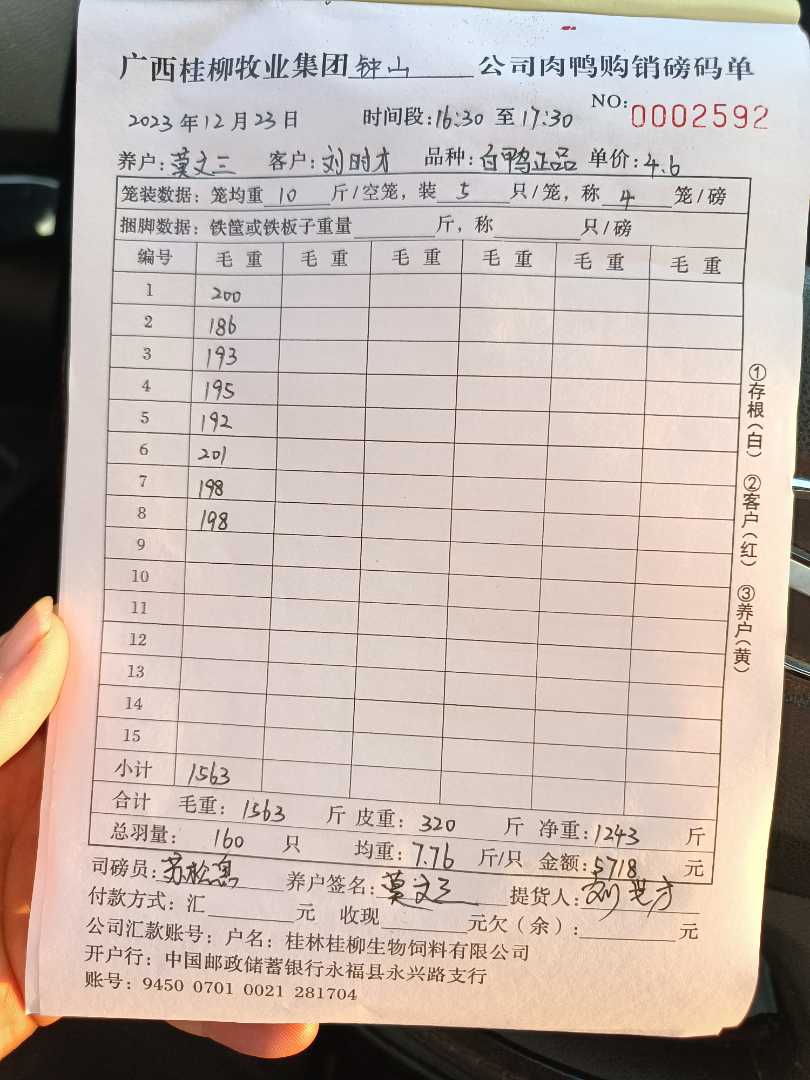 广西桂柳牧业集团钟山公司肉鸭购销磅码单
NO: 0002592
2023年12月23日 时间段:16:30至17:30
养户:莫文三 客户:刘时才 品种:白鸭正品 单价:4.6
笼装数据:笼均重10斤/空笼,装5只/笼,称4笼/磅
捆脚数据:铁筐或铁板子重量 斤,称 只/磅
编号 毛重 毛重 毛重 毛重 毛重 毛重
1 200
2 186
3 193
4 195
5 192
6 201
7 198
8 198
9
10
11
12
13
14
15
小计 1563
合计 毛重:1563斤 皮重:320斤 净重:1243斤
总羽量:160只 均重:7.76斤/只 金额:5718元
司磅员: 养户签名:莫文三 提货人:
付款方式:汇 元 收现 元欠(余): 元
公司汇款账号:户名:桂林桂柳生物饲料有限公司
开户行:中国邮政储蓄银行永福县永兴路支行
账号:9450 0701 0021 281704
①存根(白) ②客户(红) ③养户(黄)